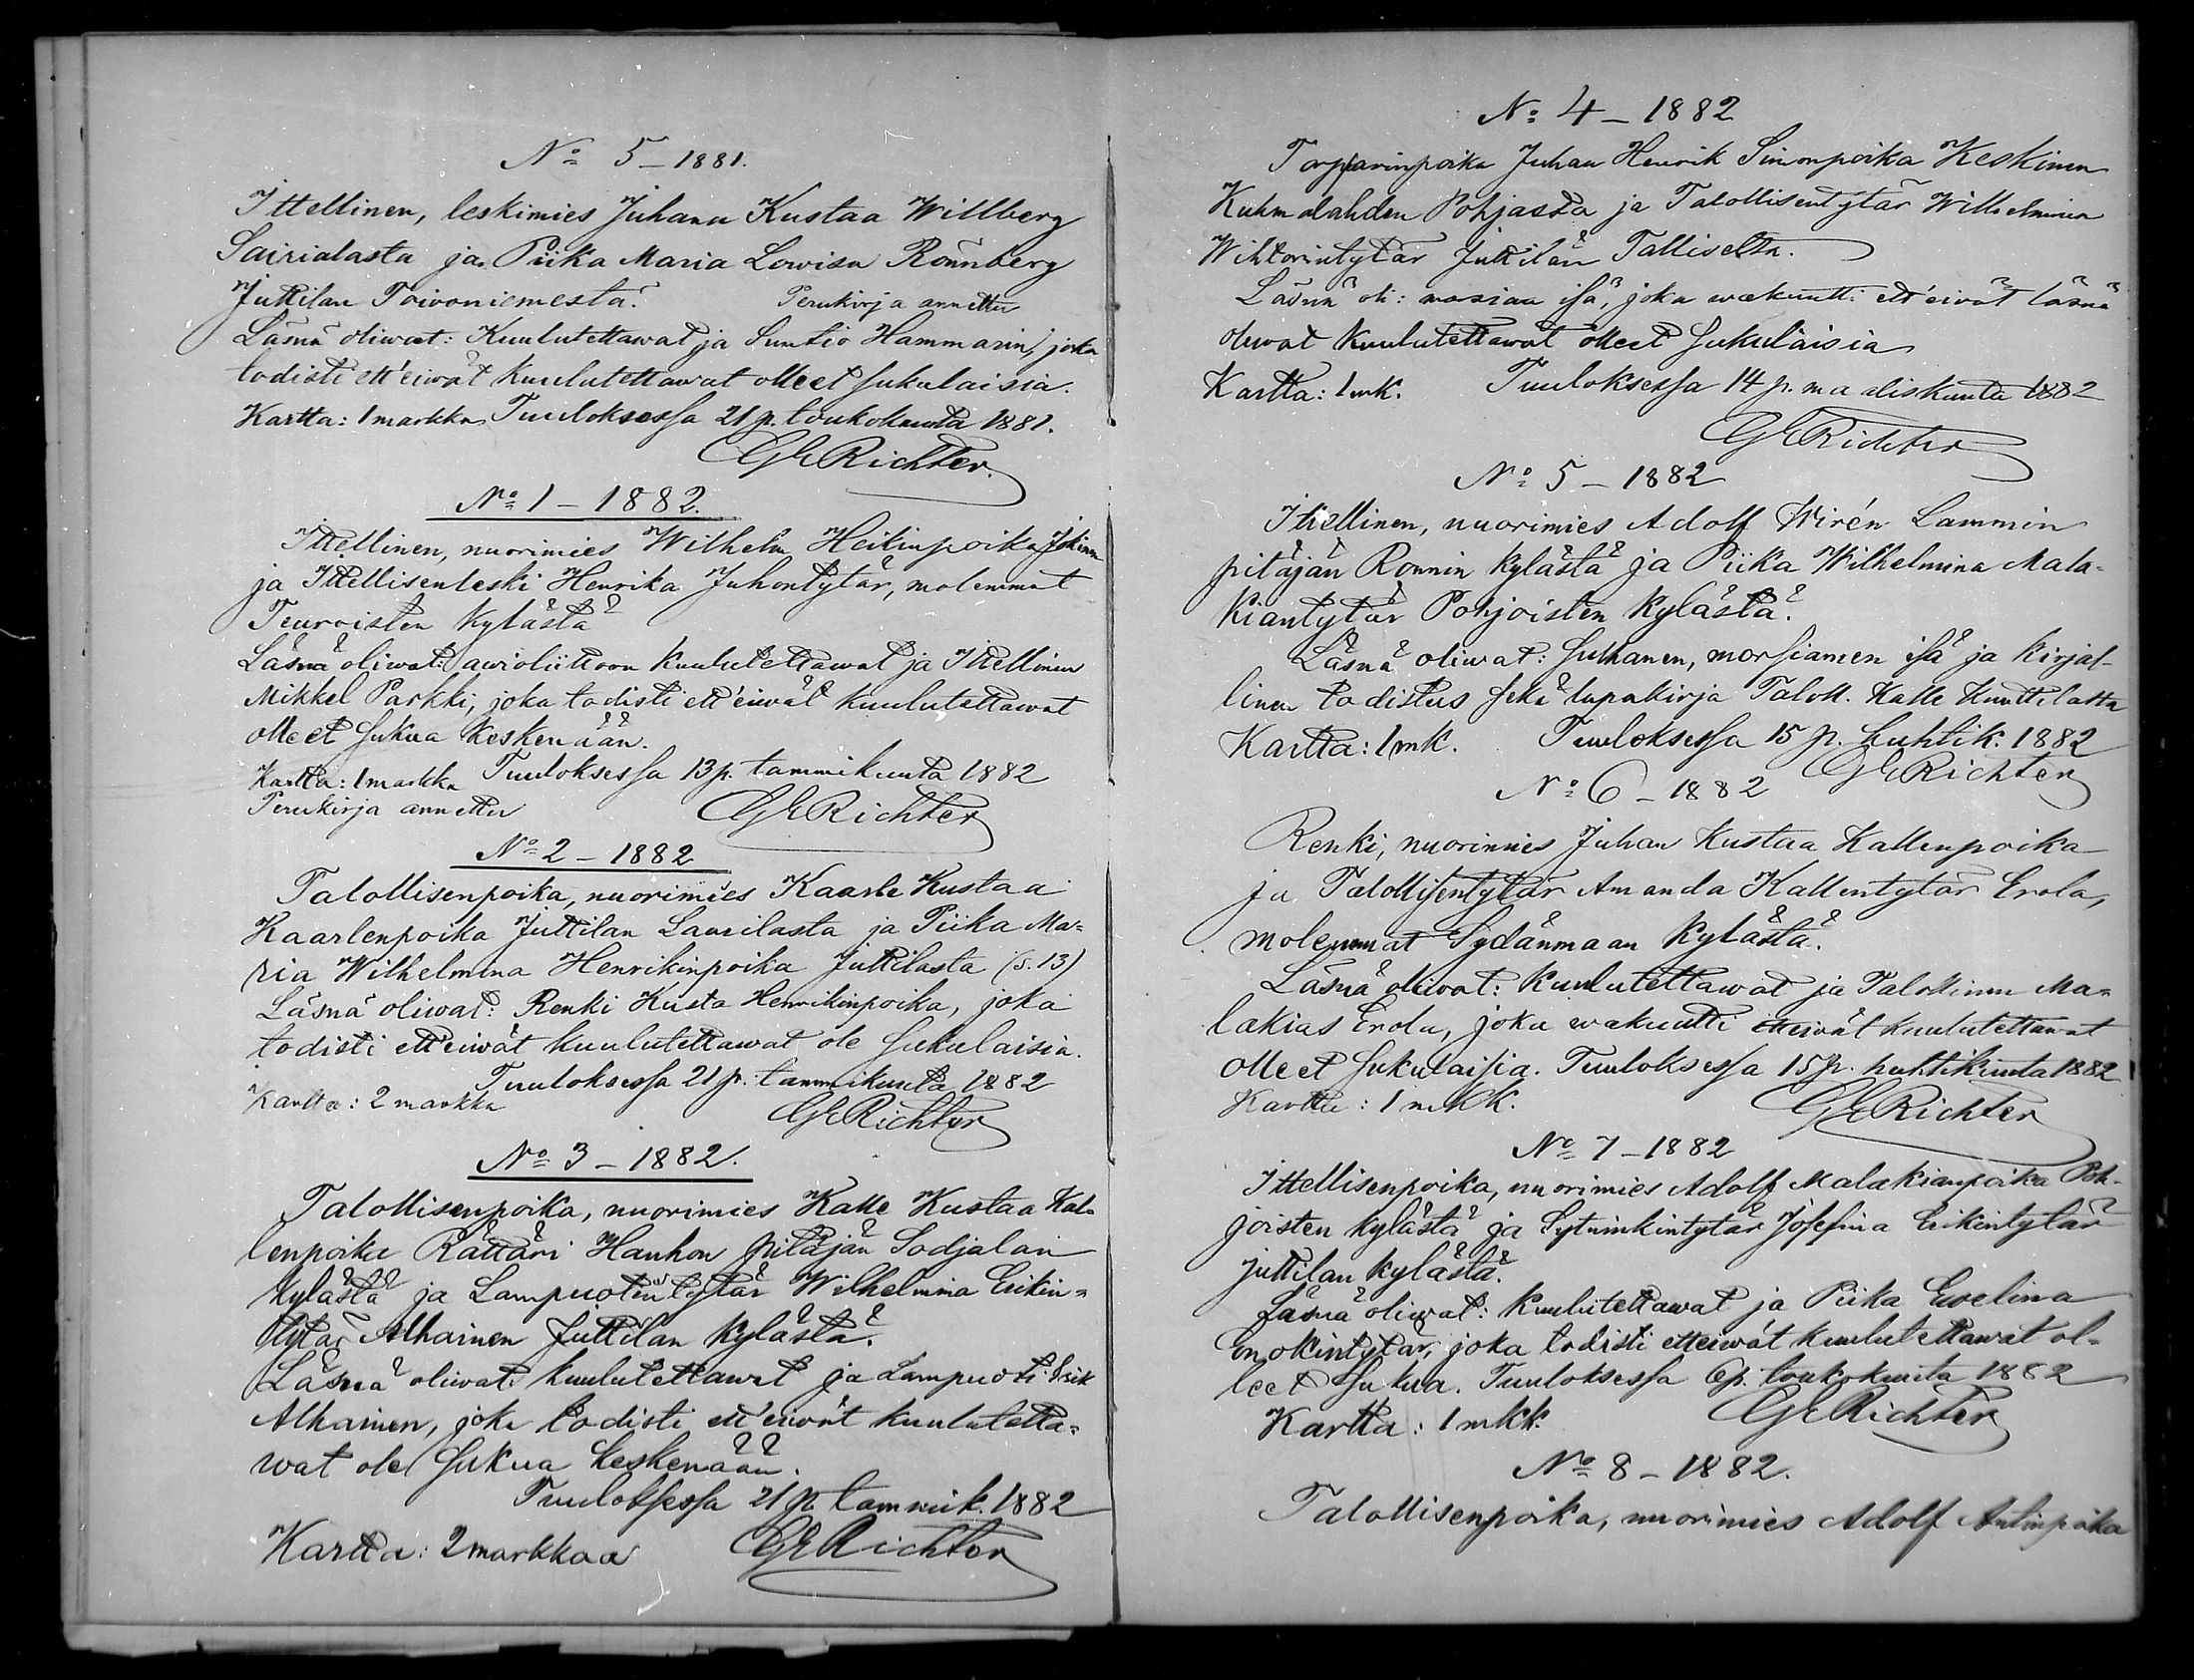 No 5 – 1881.
Ittellinen, leskimies Juhana Kustaa Willberg
Sairialasta ja Piika Maria Lowisa Rönnberg
Juttilan Toivoniemestä. Perukirja annettu
Läsnä oliwat: Kuulutettawat ja Suntio Hammarin, joka
todisti ett'eiwät kuulutettawat olleet sukulaisia.
Kartta: 1 markka Tuuloksessa 21 p. toukokuuta 1881.
GERichter.
No 1 – 1882.
Ittellinen, nuorimies Wilhelm Heikinpoika
ja Ittellisenleski Henrika Juhontytär, molemmat
Teuroisten kylästä
Läsnä oliwat: awioliittoon kuulutettawat ja Ittellinen
Mikkel Parkki, joka todisti ett'eiwät kuulutettawat
olleet sukua keskenään.
Kartta: 1 markka Tuuloksessa 13 p. tammikuuta 1882
Perukirja annettu GERichter
No 2 – 1882
Talollisenpoika, nuorimies Kaarle Kustaa
Kaarlenpoika Juttilan Laurilasta ja Piika Ma=
ria Wilhelmina Henrikinpoika Juttilasta (s. 13)
Läsnä oliwat: Renki Kusta Henrikinpoika, joka
todisti ett'eiwät kuulutettawat ole sukulaisia.
Tuuloksessa 21 p. tammikuuta 1882
Kartta: 2 markka GERichter
No 3 – 1882.
Talollisenpoika, nuorimies Kalle Kustaa Kal=
lenpoika Rättäri Hauhon pitäjän Sodjalan
kylästä ja Lampuotintytär Wilhelmina Erikin=
tytär Alhainen Juttilan kylästä.
Läsnä oliwat: kuulutettawat ja Lampuoti Erik
Alhainen, joka todisti ett'eiwät kuulutetta=
wat ole sukua keskenään.
Tuuloksessa 21 p. tammik. 1882
Kartta: 2 markkaa GERichter
No 4 – 1882
Torpparinpoika Juhan Henrik Simonpoika Keskinen
Kuhmalahden Pohjasta ja Talollisentytär Wilhelmina
Wihtorintytär Juttilän Talliselta.
Läsnä oli: isä, joka wakuutti ett'eiwät läsnä
oliwat kuulutettawat olleet sukuläisia
Kartta: 1 mk. Tuuloksessa 14 p. maaliskuuta 1882
GERichter
No 5 – 1882
Ittellinen, nuorimies Adolf Wirén Lammin
pitäjän Ronnin kylästä ja Piika Wilhelmina Mala=
kiantytär Pohjoisten kylästä.
Läsnä oliwat: Sulhanen, morsiamen isä ja kirjal-
linen todistus sekä lupakirja Taloll. Kalle Kunttilasta
Kartta: 1 mk. Tuuloksessa 15 p. huhtik. 1882
GERichter
No 6 – 1882
Renki, nuorimies Juhan Kustaa Kallenpoika
ja Talollisentytär Amanda Kallentytär Erola,
molemmat Sydänmaan kylästä.
Läsnä oliwat: kuulutettawat ja Talollinen Ma=
lakias Erola, joka wakuutti etteiwät kuulutettawat
olleet sukulaisia. Tuuloksessa 15 p. huhtikuuta 1882
Kartta: 1 mkk. GERichter
No 7 – 1882
Ittellisenpoika, nuorimies Adolf Malakianpoika Poh-
joisten kylästä ja Josefina Erikintytär
Juttilan kylästä.
Läsnä oliwat: kuulutettawat ja Piika Ewelina
Enokintytär, joka todisti etteiwät kuulutettawat ol=
leet sukua. Tuuloksessa 6 p. toukokuuta 1882
Kartta: 1 mkk. GERichter
No 8 – 1882.
Talollisenpoika, nuorimies Adolf Antinpoika